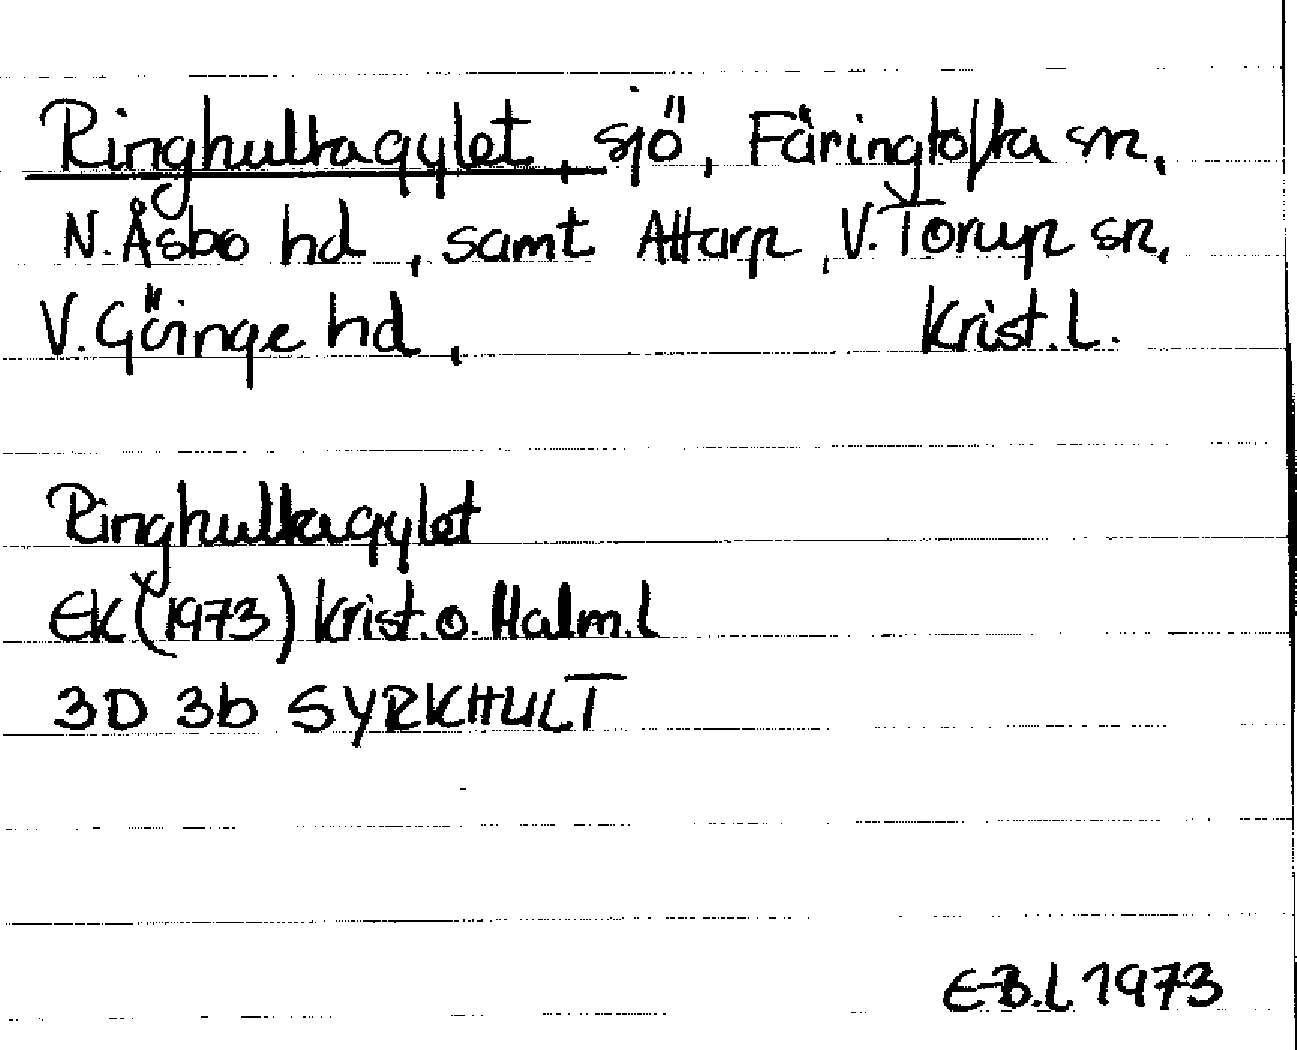 Ringhultagylet, sjö, Färingtofta sn,
N. Åsbo hd, samt Attarp, V. Torup sn,
V. Göinge hd, Krist. l.
Ringhultagylet
EK (1973) Krist. o. Halm. l
3D 3b SYRKHULT
E-B. L 1973